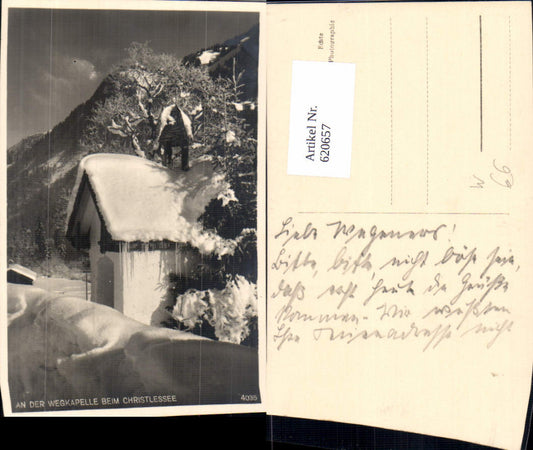 AN DER WEGKAPELLE BEIM CHRISTLESSEE 4035
Echte
Photographie
Artikel Nr.
620657
Liebe Wegeners!
Bitte, bitte nicht böse sein,
daß erst heute die Grüße
kommen. Wir wußten
Ihre Ferienadresse nicht